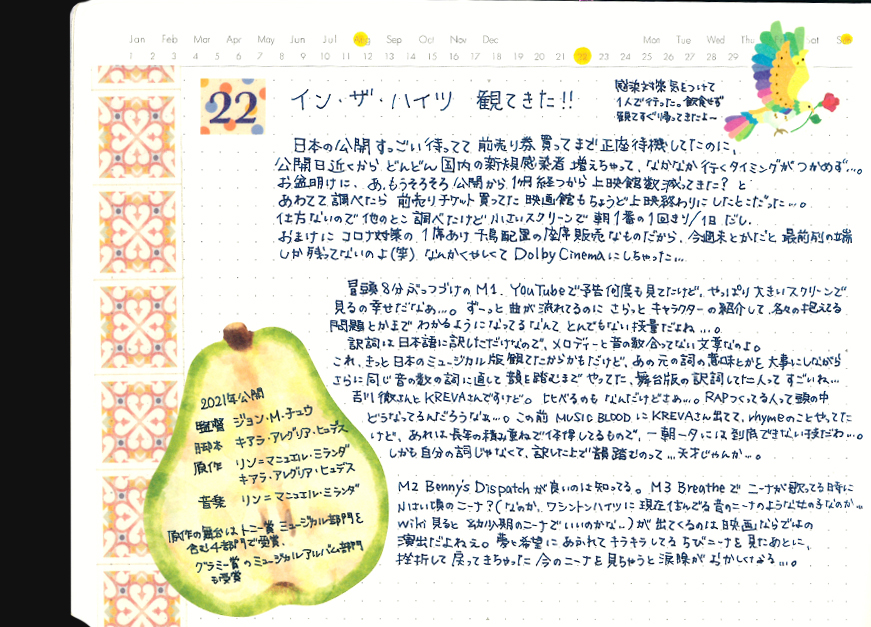 Jan Feb Mar Apr May Jun Jul Aug Sep Oct Nov Dec Mon Tue Wed Thu Fri Sat Sun
1 2 3 4 5 6 7 8 9 10 11 12 13 14 15 16 17 18 19 20 21 22 23 24 25 26 27 28 29
22
イン・ザ・ハイツ 観てきた!!
感染対策気をつけて
1人で行った。飲食せず
観てすぐ帰ってきたよー
日本の公開すっごい待ってて前売り券買ってまで正座待機してたのに、
公開日近くからどんどん国内の新規感染者増えちゃって、なかなか行くタイミングがつかめず…。
お盆明けに、あ、もうそろそろ公開から1ヶ月経つから上映館数減ってきた?と
あわてて調べたら前売りチケット買ってた映画館もちょうど上映終わりにしたとこだった…。
仕方ないので他のとこ調べたけど小さいスクリーンで朝1番の1回きり/1日だし、
おまけにコロナ対策の1席あけ千鳥配置の座席販売なものだから、今週末とかだと最前列の端
しか残ってないのよ(笑)なんかくやしくてDolby Cinemaにしちゃった…
冒頭8分ぶっつづけのM1. YouTubeで予告何度も見てたけど、やっぱり大きいスクリーンで
見るの幸せだなぁ…。ずーっと曲が流れてるのにさらっとキャラクターの紹介して、各々の抱える
問題とかまでわかるようになってるなんてとんでもない技量だよね…。
訳詞は日本語に訳しただけなので、メロディーと音の数合ってない文章なのよ。
これ、きっと日本のミュージカル版観てたからかもだけど、あの元の詞の意味とかを大事にしながら
さらに同じ音の数の詞に直して韻を踏むまでやってた、舞台版の訳詞した二人ってすごいね…
吉川徹さんとKREVAさんですけど。比べるのもなんだけどさぁ…。RAPつくってる人って頭の中
どうなってるんだろうなぁ…。この前MUSIC BLOODにKREVAさん出てて、rhymeのことやってた
けど、あれは長年の積み重ねで体得してるもので、一朝一夕には到底できない技だわ…。
しかも自分の詞じゃなくて、訳した上で韻踏むのって…天才じゃんか…。
M2 Benny's Dispatchが良いのは知ってる。M3 Breatheでニーナが歌ってる時に
小さい頃のニーナ?(なのか、ワシントンハイツに現在住んでる昔のニーナのような女の子なのか…
wiki見ると幼少期のニーナでいいのかな…)が出てくるのは映画ならではの
演出だよねぇ。夢と希望にあふれてキラキラしてるちびニーナを見たあとに、
挫折して戻ってきちゃった今のニーナを見ちゃうと涙腺がおかしくなる…。
2021年公開
監督 ジョン・M・チュウ
脚本 キアラ・アレグリア・ヒュデス
原作 リン=マニュエル・ミランダ
キアラ・アレグリア・ヒュデス
音楽 リン=マニュエル・ミランダ
原作の舞台はトニー賞ミュージカル部門を
含む4部門で受賞、
グラミー賞のミュージカルアルバム部門
も受賞